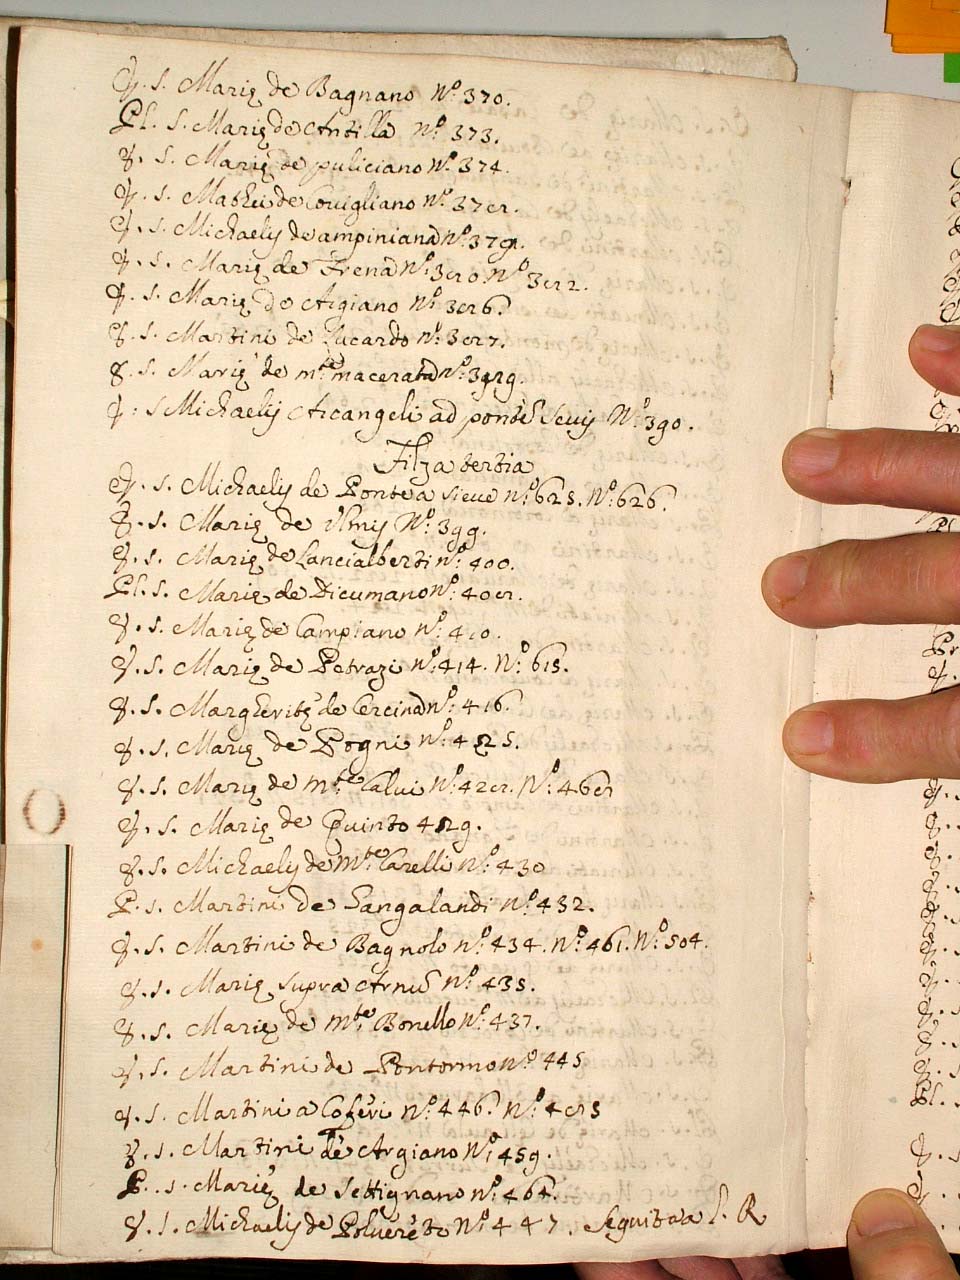 E. S. Marię de Bagnano N.º 370.
Pl. S. Marię de Antilla N.º 373.
E. S. Marię de puliciano N.º 374.
E. S. Mathei de Covigliano N.º 378.
E. S. Michaelis de ampiniana N.º 379.
E. S. Marię de Frena N.º 380 N.º 382.
E. S. Marię de Argiano N.º 386.
E. S. Martini de Lucardo N.º 387.
E. S. Marię de m.te macerata N.º 389.
E. S Michaelis Arcangeli ad ponté Sevis N.º 390.
Filza tertia
E. S. Michaelis de Ponte a sieve N.º 625. N.º 626.
E. S. Marię de Ulmis N.º 399.
E. S. Marię de Lancialberti N.º 400.
Pl. S. Marię de Dicumano N.º 408.
E. S. Marię de Campiano N.º 410.
E. S. Marię de Petrazi N.º 414. N.º 615.
E. S. Margheritę de Cercina N.º 416.
E. S. Marię de Pogni N.º 425.
E. S. Marię de m.te Calvi N.º 428. N.º 468
E. S. Marię de Quinto 429.
E. S. Michaelis de M.te Carelli N.º 430
P. S. Martini de Gangalandi N.º 432.
E. S. Martini de Bagnolo N.º 434. N.º 461. N.º 504.
E. S. Marię supra Arnū N.º 435.
E. S. Marię de M.te Bonello N.º 437.
E. S. Martini de Pontormo N.º 445
E. S. Martini a Coferi N.º 446. N.º 485
E. S. Martini de Argiano N.º 459.
P. S. Marię de Settignano N.º 464.
E. S. Michaelis de Polvereto N.º 447. Seguita a